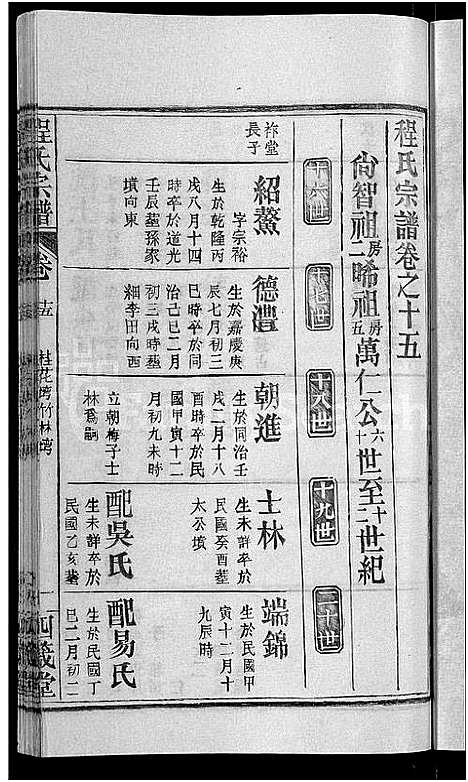 程氏宗譜卷之十五
尙智祖二房晞祖五房萬仁公十六世至二十世紀
十六世
十七世
十八世
十九世
二十世
祚堂
長子
紹鰲
字宗裕
生於乾隆丙
戌八月十四
時卒於道光
壬辰塟孫家
墳向東
德灃
生於嘉慶庚
辰七月初三
巳時卒於同
治己巳二月
初三戌時塟
細李田向西
朝進
生於同治壬
戌二月十八
酉時卒於民
國甲寅十二
月初九未時
立朝梅子士
林爲嗣
士林
生未詳卒於
民國癸酉塟
太公墳
配吳氏
生未詳卒於
民國乙亥塟
端錦
生於民國甲
寅十二月十
九辰時
配易氏
生於民國丁
巳二月初二
程氏宗譜
卷
十五
桂花塆竹林塆
一
四箴堂